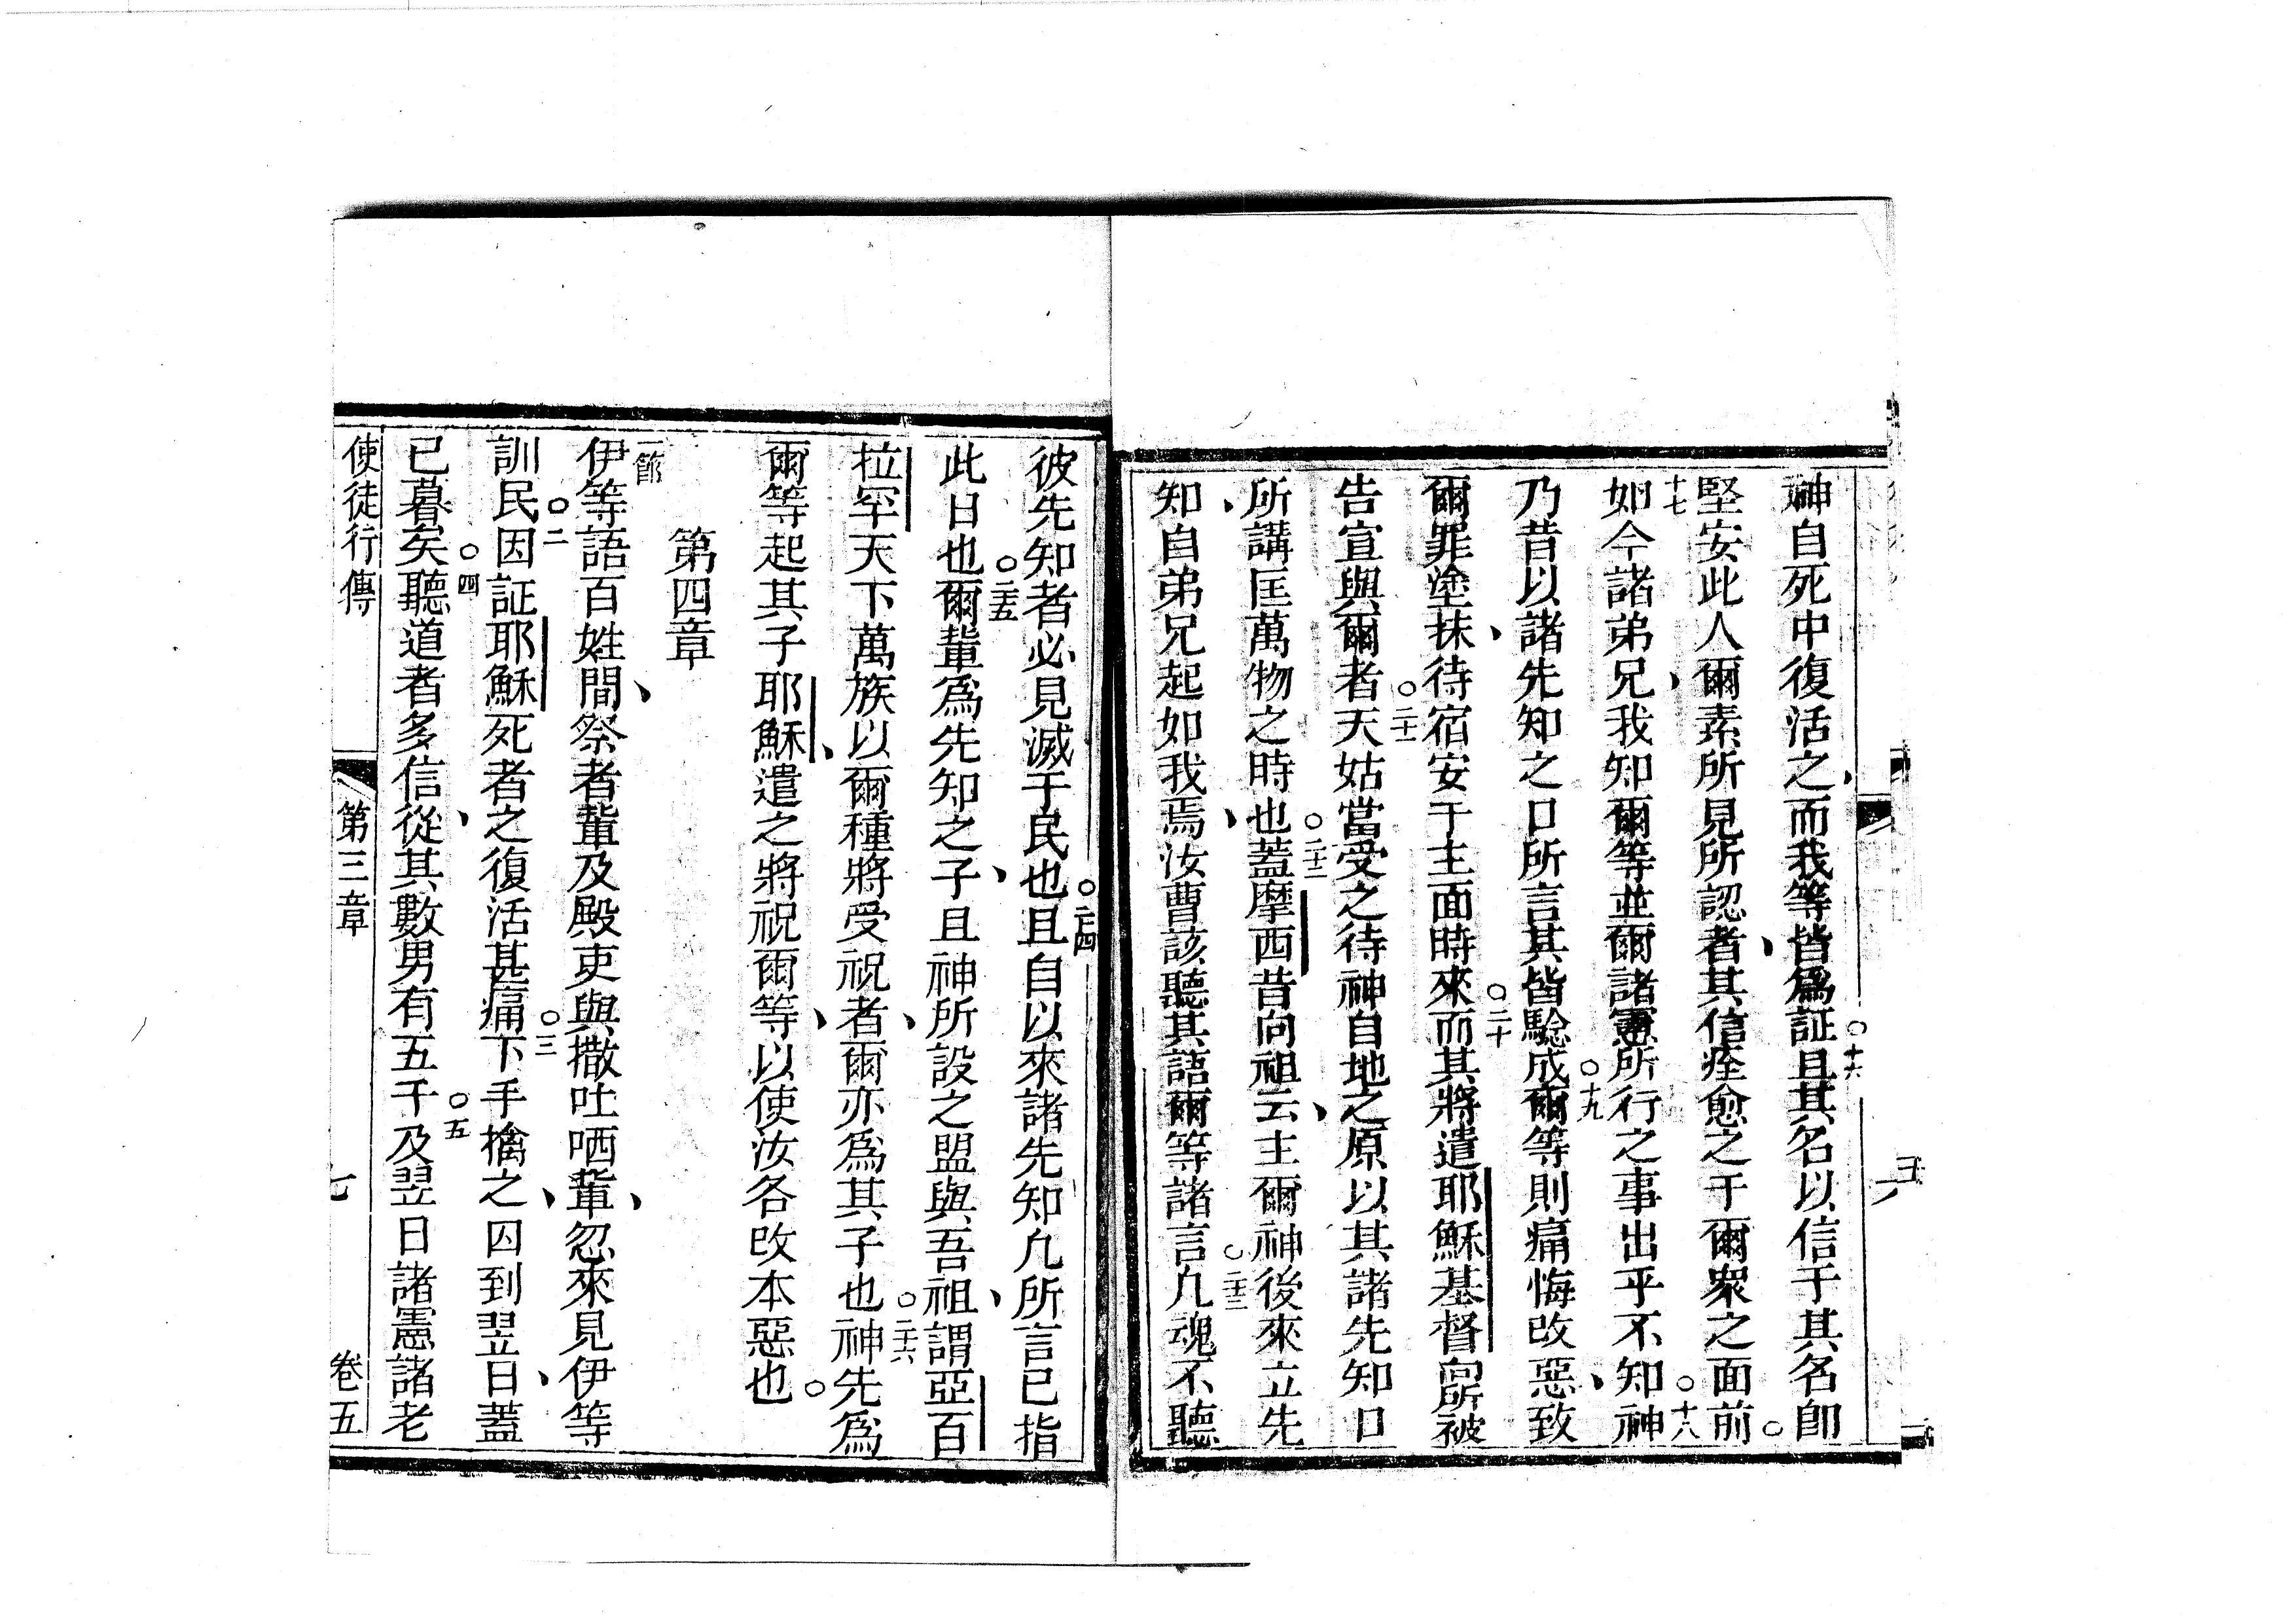 神自死中復活之、而我等皆爲証○十六且其名以信于其名卽
堅安此人爾素所見所認者、其信痊愈之于爾衆之面前○
十七如今諸弟兄、我知爾等並爾諸憲所行之事出乎不知○十八神
乃昔以諸先知之口所言其皆騐成○十九爾等則痛悔改惡、致
爾罪塗抹、待宿安于主面時來○二十而其將遣耶穌基督向所被
告宣與爾者○二十一天姑當受之待神自地之原以其諸先知口
所講匡萬物之時也○二十二蓋摩西昔向祖云、主爾神後來立先
知、自弟兄起如我焉、汝曹該聽其語爾等諸言○二十三凡魂不聽
彼先知者必見滅于民也○二十四且自以來諸先知凡所言已指
此日也○二十五爾輩爲先知之子、且神所設之盟與吾祖、謂亞百
拉罕天下萬族以爾種將受祝者、爾亦爲其子也○二十六神先爲
爾等起其子耶穌、遣之將祝爾等、以使汝各改本惡也○
第四章
一節伊等語百姓間、祭者輩及殿吏與撒吐哂輩、忽來見伊等
訓民○二因証耶穌死者之復活甚痛○三下手擒之、囚到翌日、蓋
已暮矣○四聽道者多信從、其數男有五千○五及翌日諸憲諸老
使徒行傳 第三章 七 卷五